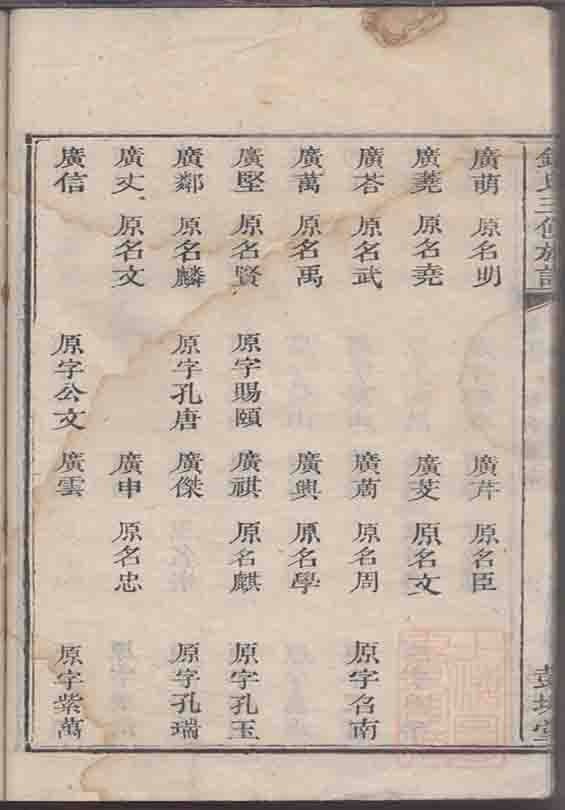 氏三修族譜
廣萌 原名明 廣芹 原名臣
廣蕘 原名堯 廣芠 原名文
廣荅 原名武 廣萬 原名周 原字名南
廣萬 原名禹 廣興 原名學
廣堅 原名賢 原字賜頤 廣祺 原名麒 原字孔玉
廣鄰 原名麟 原字孔唐 廣傑 原字孔瑞
廣丈 原名文 廣申 原名忠
廣信 原字公文 廣雲 原字紫萬